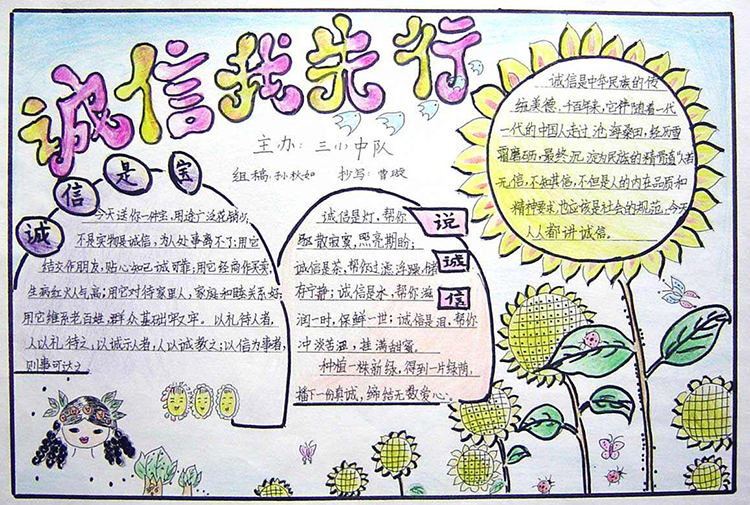 诚信我先行
主办:三小中队
组稿:孙秋如 抄写:曹璇
诚信是宝
今天送你一件宝,用途广泛花销少,
不是实物是诚信,为人处事离不了;用它
结交作朋友,贴心知己诚可靠;用它经商作买卖,
生病红火人气高;用它对待家里人,家庭和睦关系好;
用它维系老百姓,群众基础牢又牢。以礼待人者,
人以礼待之,以诚示人者,人以诚教之;以信为事者,
则事可达之
说诚信
诚信是灯,帮你
驱散寂寞,照亮期盼;
诚信是茶,帮你过滤浮躁,
存宁静;诚信是水,帮你滋
润一时,保鲜一世;诚信是泪,帮你
冲淡苦涩,挂满甜蜜。
种植一株新绿,得到一片绿荫,
播下一份真诚,缔结无数爱心。
诚信是中华民族的传
统美德,千百年来,它伴随着一代
一代的中国人走过沧海桑田,经历雪
霜磨砺,最终沉淀为民族的精骨道"人若
无信,不知其信,不但是人的内在品质和
精神要求,也应该是社会的规范,今天
人人都讲诚信。